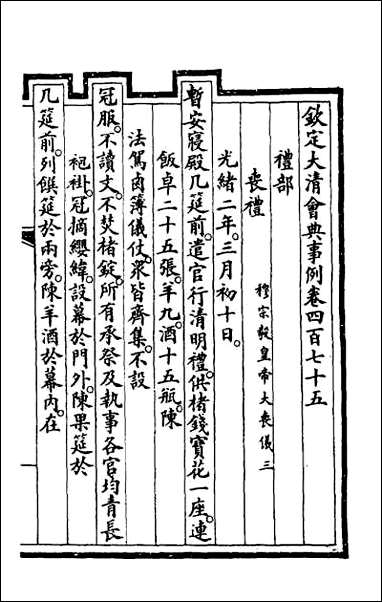 欽定大清會典事例卷四百七十五
禮部
喪禮 穆宗毅皇帝大喪儀三
光緒二年。三月初十日。
暫安寢殿几筵前遣官行清明禮。供楮錢寶花一座。連
飯卓二十五張。羊九。酒十五瓶。陳
法駕鹵簿儀仗。衆皆齊集。不設
冠服。不讀文。不焚楮錠。所有承祭及執事各官均青長
袍褂。冠摘纓緯。設幕於門外。陳果筵於
几筵前。列饌筵於兩旁。陳羊酒於幕內。在